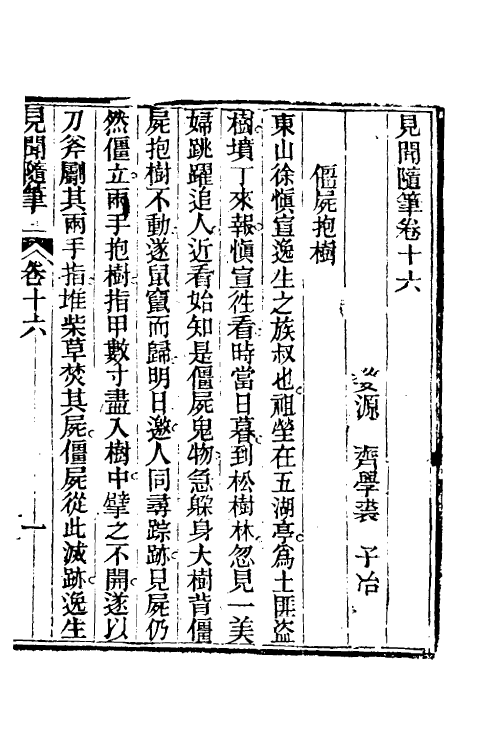 見聞隨筆卷十六
婺源　齊學裘　子冶
僵屍抱樹
東山徐愼宣逸生之族叔也祖塋在五湖亭爲土匪盜
樹墳丁來報愼宣徃看時當日暮到松樹林忽見一美
婦跳躍追人近看始知是僵屍鬼物急躲身大樹背僵
屍抱樹不動遂鼠竄而歸明日邀人同尋踪跡見屍仍
然僵立兩手抱樹指甲數寸盡入樹中擘之不開遂以
刀斧劚其兩手指堆柴草焚其屍僵屍從此滅跡逸生
見聞隨筆 卷十六 一